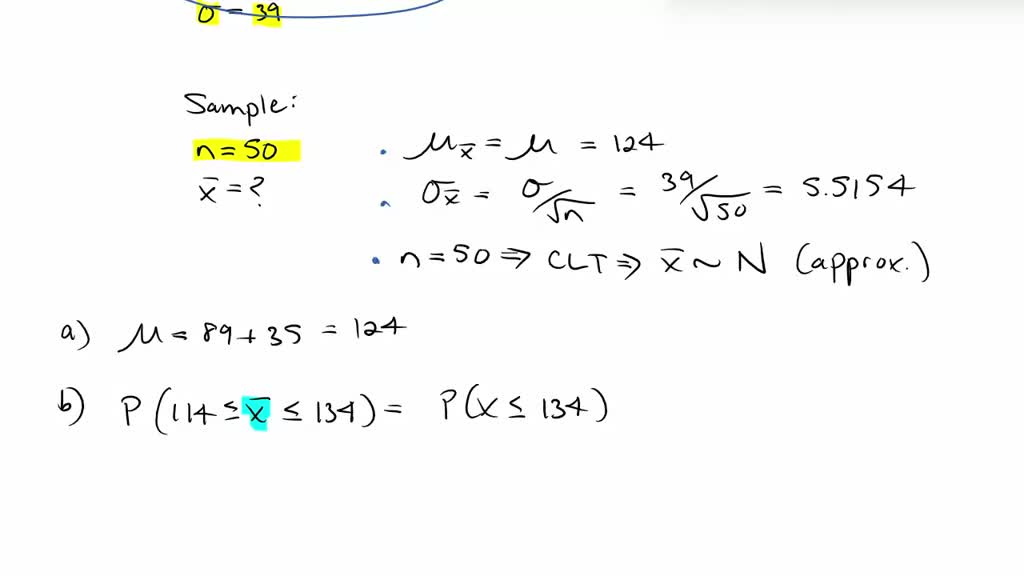 σ = 39
Sample:
n = 50
x̄ = ?
• μx̄ = μ = 124
• σx̄ = σ/√n = 39/√50 = 5.5154
• n = 50 ⇒ CLT ⇒ x̄ ~ N (approx.)
a) μ = 89 + 35 = 124
b) P(114 ≤ x̄ ≤ 134) = P(x ≤ 134)